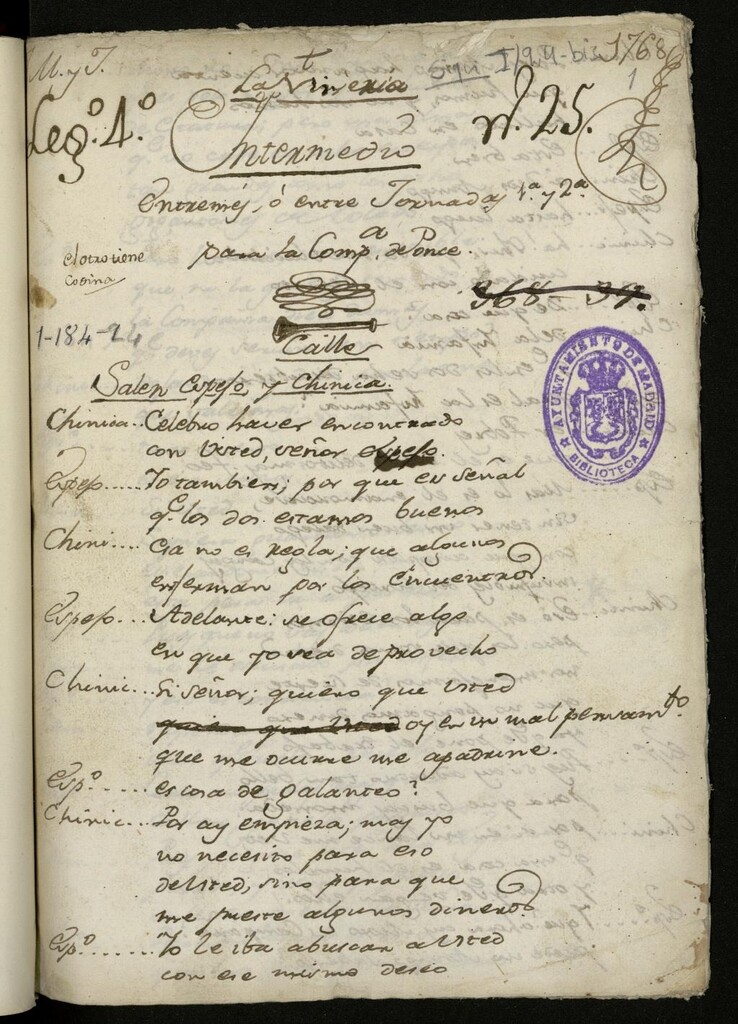 M. y J.
1768
1
Leg.º 4.º
N.º 25.
Intermedio
Entremés, ó entre Jornadas 1.ª y 2.ª
para la Comp.ª de Ponce.
el otro tiene
Cocina
368-39.
1-184-24
Calle
AYUNTAMIENTO DE MADRID
BIBLIOTECA
Salen Espejo, y Chinica.
Chinica.. Celebro haver encontrado
con Usted, señor espejo.
Espejo..... Yo tambien; por que es señal
q.e los dos estamos buenos
Chini.... Esa no es regla; que algunos
enferman por los Encuentros.
Espejo... Adelante: se ofrece algo
en que yo sea de provecho
Chinic... Si señor; quiero que Usted
quiero que Usted oy en un mal pensam.to
que me ocurre me apadrine.
Esp.º...... es cosa de galanteo?
Chinic... Por ay empieza; mas yo
no necesito para eso
de Usted, sino para que
me preste algunos dineros.
Esp.º...... Yo le iba a buscar a Usted
con ese mismo deseo